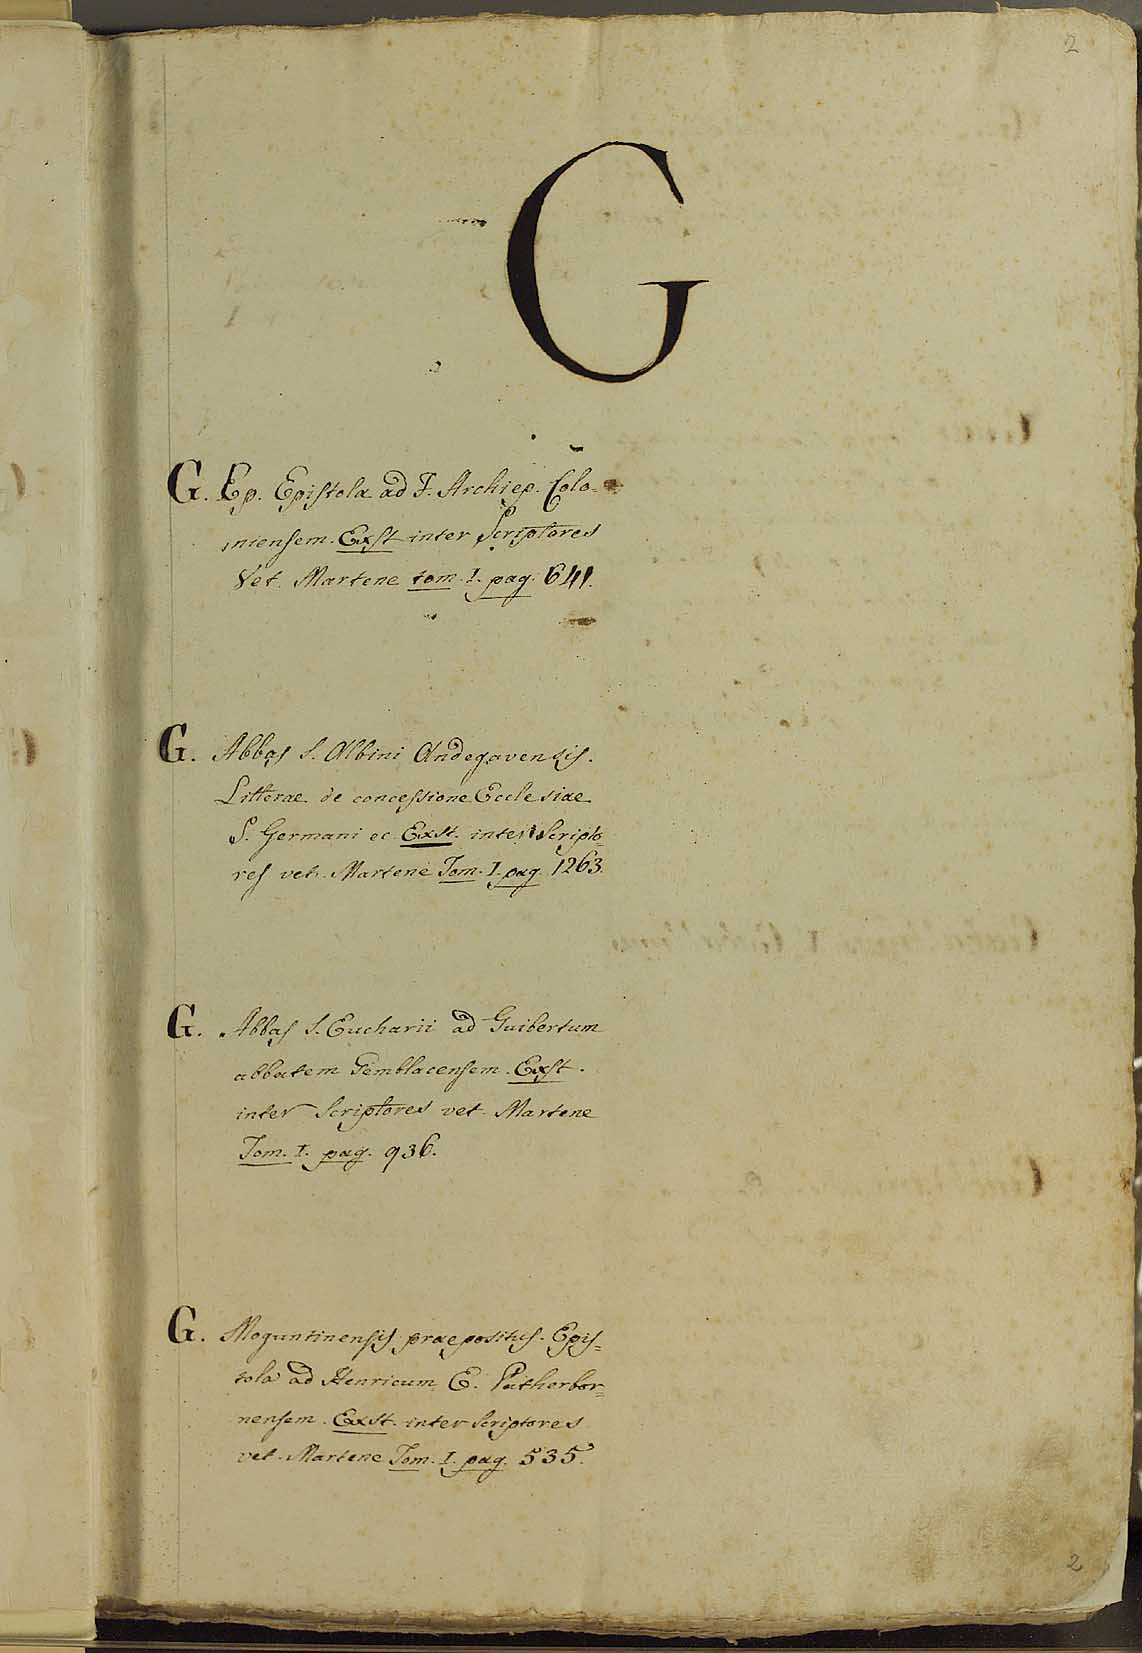 2
G
G. Ep. Epistola ad F. Archiep. Colo-
niensem. Exst inter Scriptores
Vet. Martene tom. I. pag. 641.
G. Abbas S. Albini Andegavensis.
Litterae de concessione Ecclesiae
S. Germani ec Exst. inter Scripto-
res vet. Martene Tom. I. pag. 1263.
G. Abbas S. Eucharii ad Guibertum
abbatem Gemblacensem. Exst.
inter Scriptores vet. Martene
Tom. I. pag. 936.
G. Moguntinensis praepositus. Epis=
tola ad Henricum E. Patherbor=
nensem. Exst. inter Scriptores
vet. Martene Tom. I. pag. 535.
2